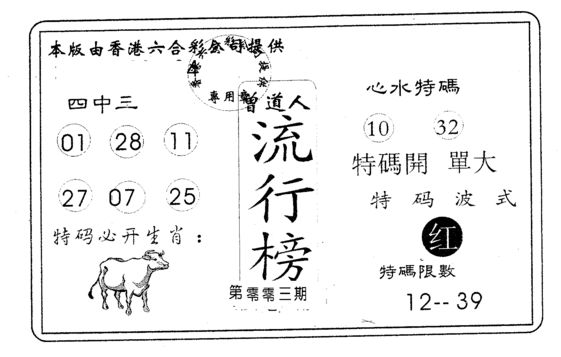 本版由香港六合彩公司提供
專用章
四中三
01 28 11
27 07 25
特码必开生肖：
曾道人
流行榜
第零零三期
心水特碼
10 32
特碼開 單大
特码波式
红
特碼限數
12--39